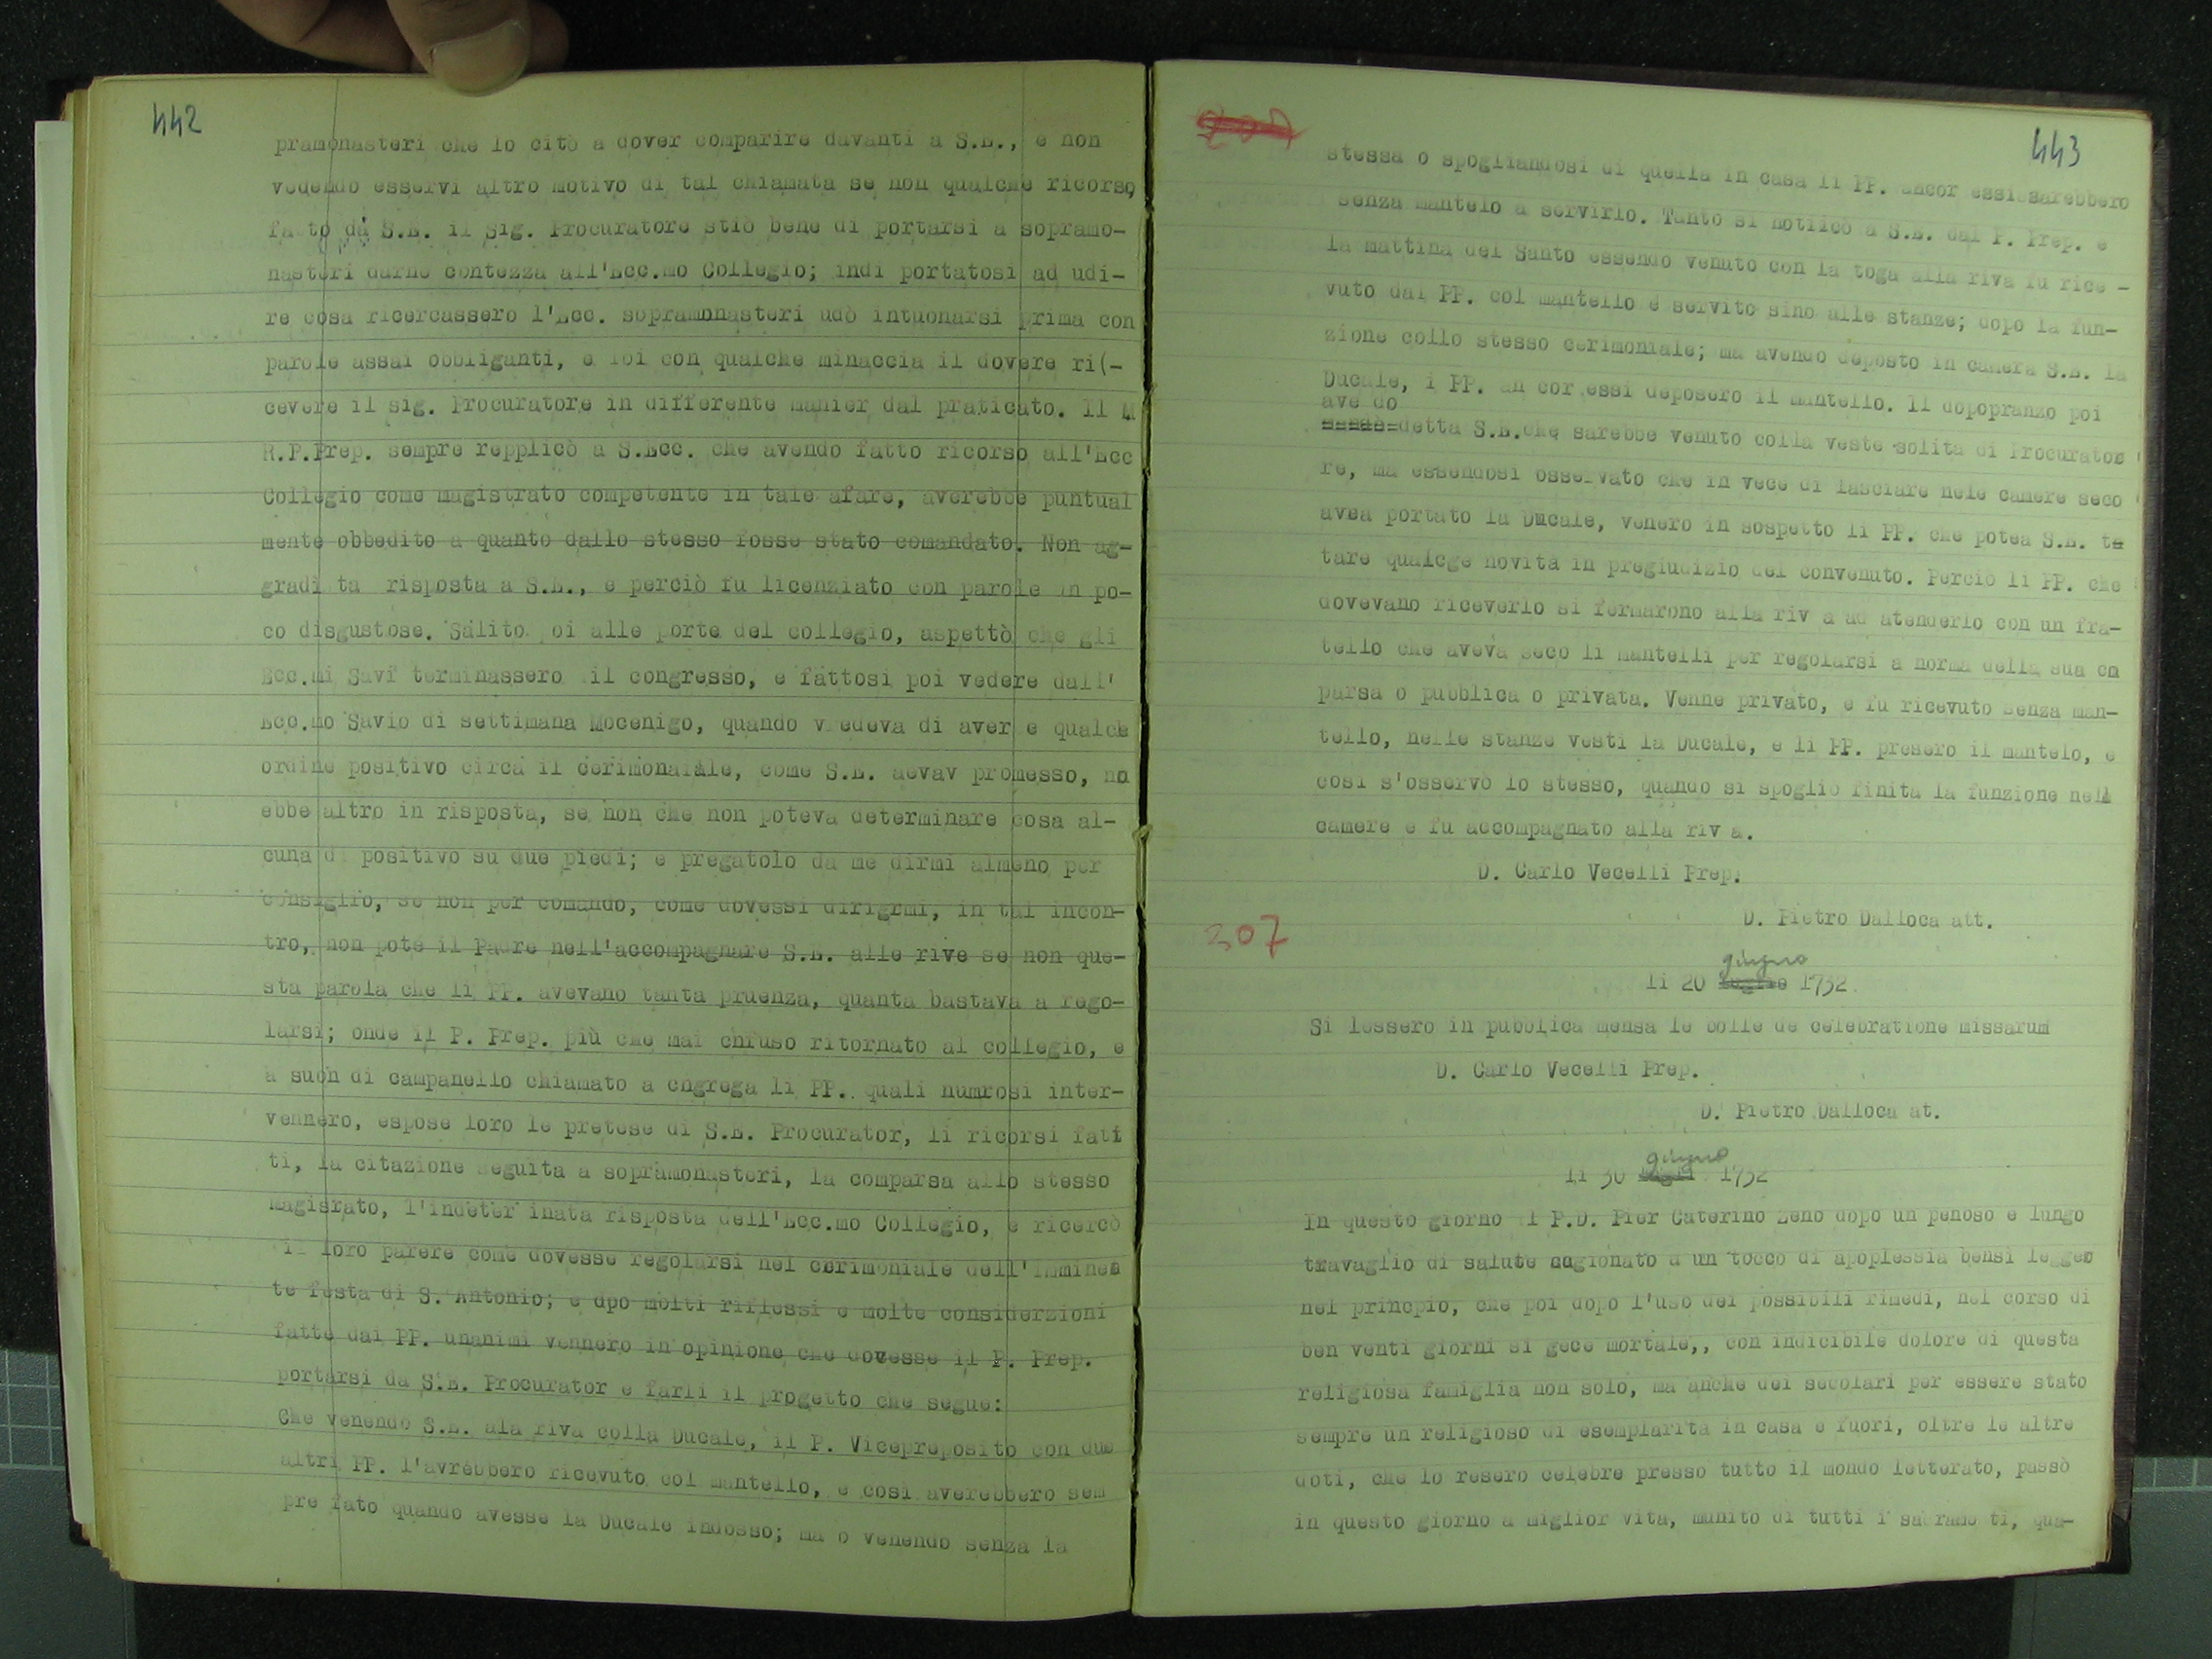 442
pramonasteri che lo citò a dover comparire davanti a S.E., e non
vedendo esservi altro motivo di tal chiamata se non qualche ricorso,
fatto da S.E. il Sig. Procuratore stiò bene di portarsi a sopramo-
nasteri darne contezza all'Ecc.mo Collegio; indi portatosi ad udi-
re cosa ricercassero l'Ecc. sopramonasteri udò intuonarsi prima con
parole assai obbliganti, e poi con qualche minaccia il dovere ri(-
cevere il sig. Procuratore in differente manier dal praticato. Il M
R.P.Prep. sempre repplicò a S.Ecc. che avendo fatto ricorso all'Ecc
Collegio come magistrato competente in tale afare, averebbe puntual
mente obbedito a quanto dallo stesso fosse stato comandato. Non ag-
gradi ta risposta a S.E., e perciò fu licenziato con parole un po-
co disgustose. Salito poi alle porte del collegio, aspettò che gli
Ecc.mi Savi terminassero il congresso, e fattosi poi vedere dall'
Ecc.mo Savio di settimana Mocenigo, quando v edeva di aver e qualche
ordine positivo circa il cerimonaiale, come S.E. aevav promesso, no
ebbe altro in risposta, se non che non poteva determinare cosa al-
cuna di positivo su due piedi; e pregatolo da me dirmi almeno per
consiglio, se non per comando, come dovessi dirigrmi, in tal incon-
tro, non potè il Padre nell'accompagnare S.E. alle rive se non que-
sta parola che li PP. avevano tanta pruenza, quanta bastava a rego-
larsi; onde il P. Prep. più che mai chiuso ritornato al collegio, e
a suon di campanello chiamato a cngrega li PP. quali numrosi inter-
vennero, espose loro le pretese di S.E. Procurator, li ricorsi fatt
ti, la citazione seguita a sopramonasteri, la comparsa allo stesso
Magisrato, l'indeter inata risposta dell'Ecc.mo Collegio, e ricercò
il loro parere come dovesse regolarsi nel cerimoniale dell'imminen
te festa di S. Antonio; e dpo molti riflessi e molte considerzioni
fatte dai PP. unanimi vennero in opinione che dovesse il P. Prep.
portarsi da S.E. Procurator e farli il progetto che segue:
Che venendo S.E. ala riva colla Ducale, il P. Vicepreposito con due
altri PP. l'avrebbero ricevuto col mantello, e così averebbero sem
pre fato quando avesse la Ducale indosso; ma o venendo senza la
443
stessa o spogliandosi di quella in casa li PP. ancor essi sarebbero
senza mantelo a servirlo. Tanto si notificò a S.E. dal P. Prep. e
la mattina del Santo essendo venuto con la toga alla riva fu rice -
vuto dai PP. col mantello e servito sino alle stanze; dopo la fun-
zione collo stesso cerimoniale; ma avendo deposto in camera S.E. la
Ducale, i PP. an cor essi deposero il mantello. Il dopopranzo poi
ave do
detta S.E.che sarebbe venuto colla veste solita di Procurator
re, ma essendosi osservato che in vece di lasciare nele camere seco
avea portato la Ducale, venero in sospetto li PP. che potea S.E. te
tare qualcge novità in pregiudizio del convenuto. Perciò li PP. che
dovevano riceverlo si fermarono alla riv a ad atenderlo con un fra-
tello che aveva seco li mantelli per regolarsi a norma della sua co
parsa o pubblica o privata. Venne privato, e fu ricevuto senza man-
tello, nelle stanze vestì la Ducale, e li PP. presero il mantelo, e
così s'osservò lo stesso, quando si spogliò finita la funzione nell
camere e fu accompagnato alla riv a.
D. Carlo Vecelli Prep.
D. Pietro Dalloca att.
307
giugno
li 20 luglio 1732
Si lessero in pubblica mensa le bolle de celebratione missarum
D. Carlo Vecelli Prep.
D. Pietro Dalloca at.
giugno
li 30 1732
In questo giorno il P.D. Pier Caterino Zeno dopo un penoso e lungo
travaglio di salute cagionato d un tocco di apoplessia bensì legger
nel princpio, che poi dopo l'uso dei possibili rimedi, nel corso di
ben venti giorni si gece mortale,, con indicibile dolore di questa
religiosa famiglia non solo, ma anche dei secolari per essere stato
sempre un religioso di esemplarità in casa e fuori, oltre le altre
doti, che lo resero celebre presso tutto il mondo letterato, passò
in questo giorno a miglior vita, munito di tutti i sacrame ti, qua-